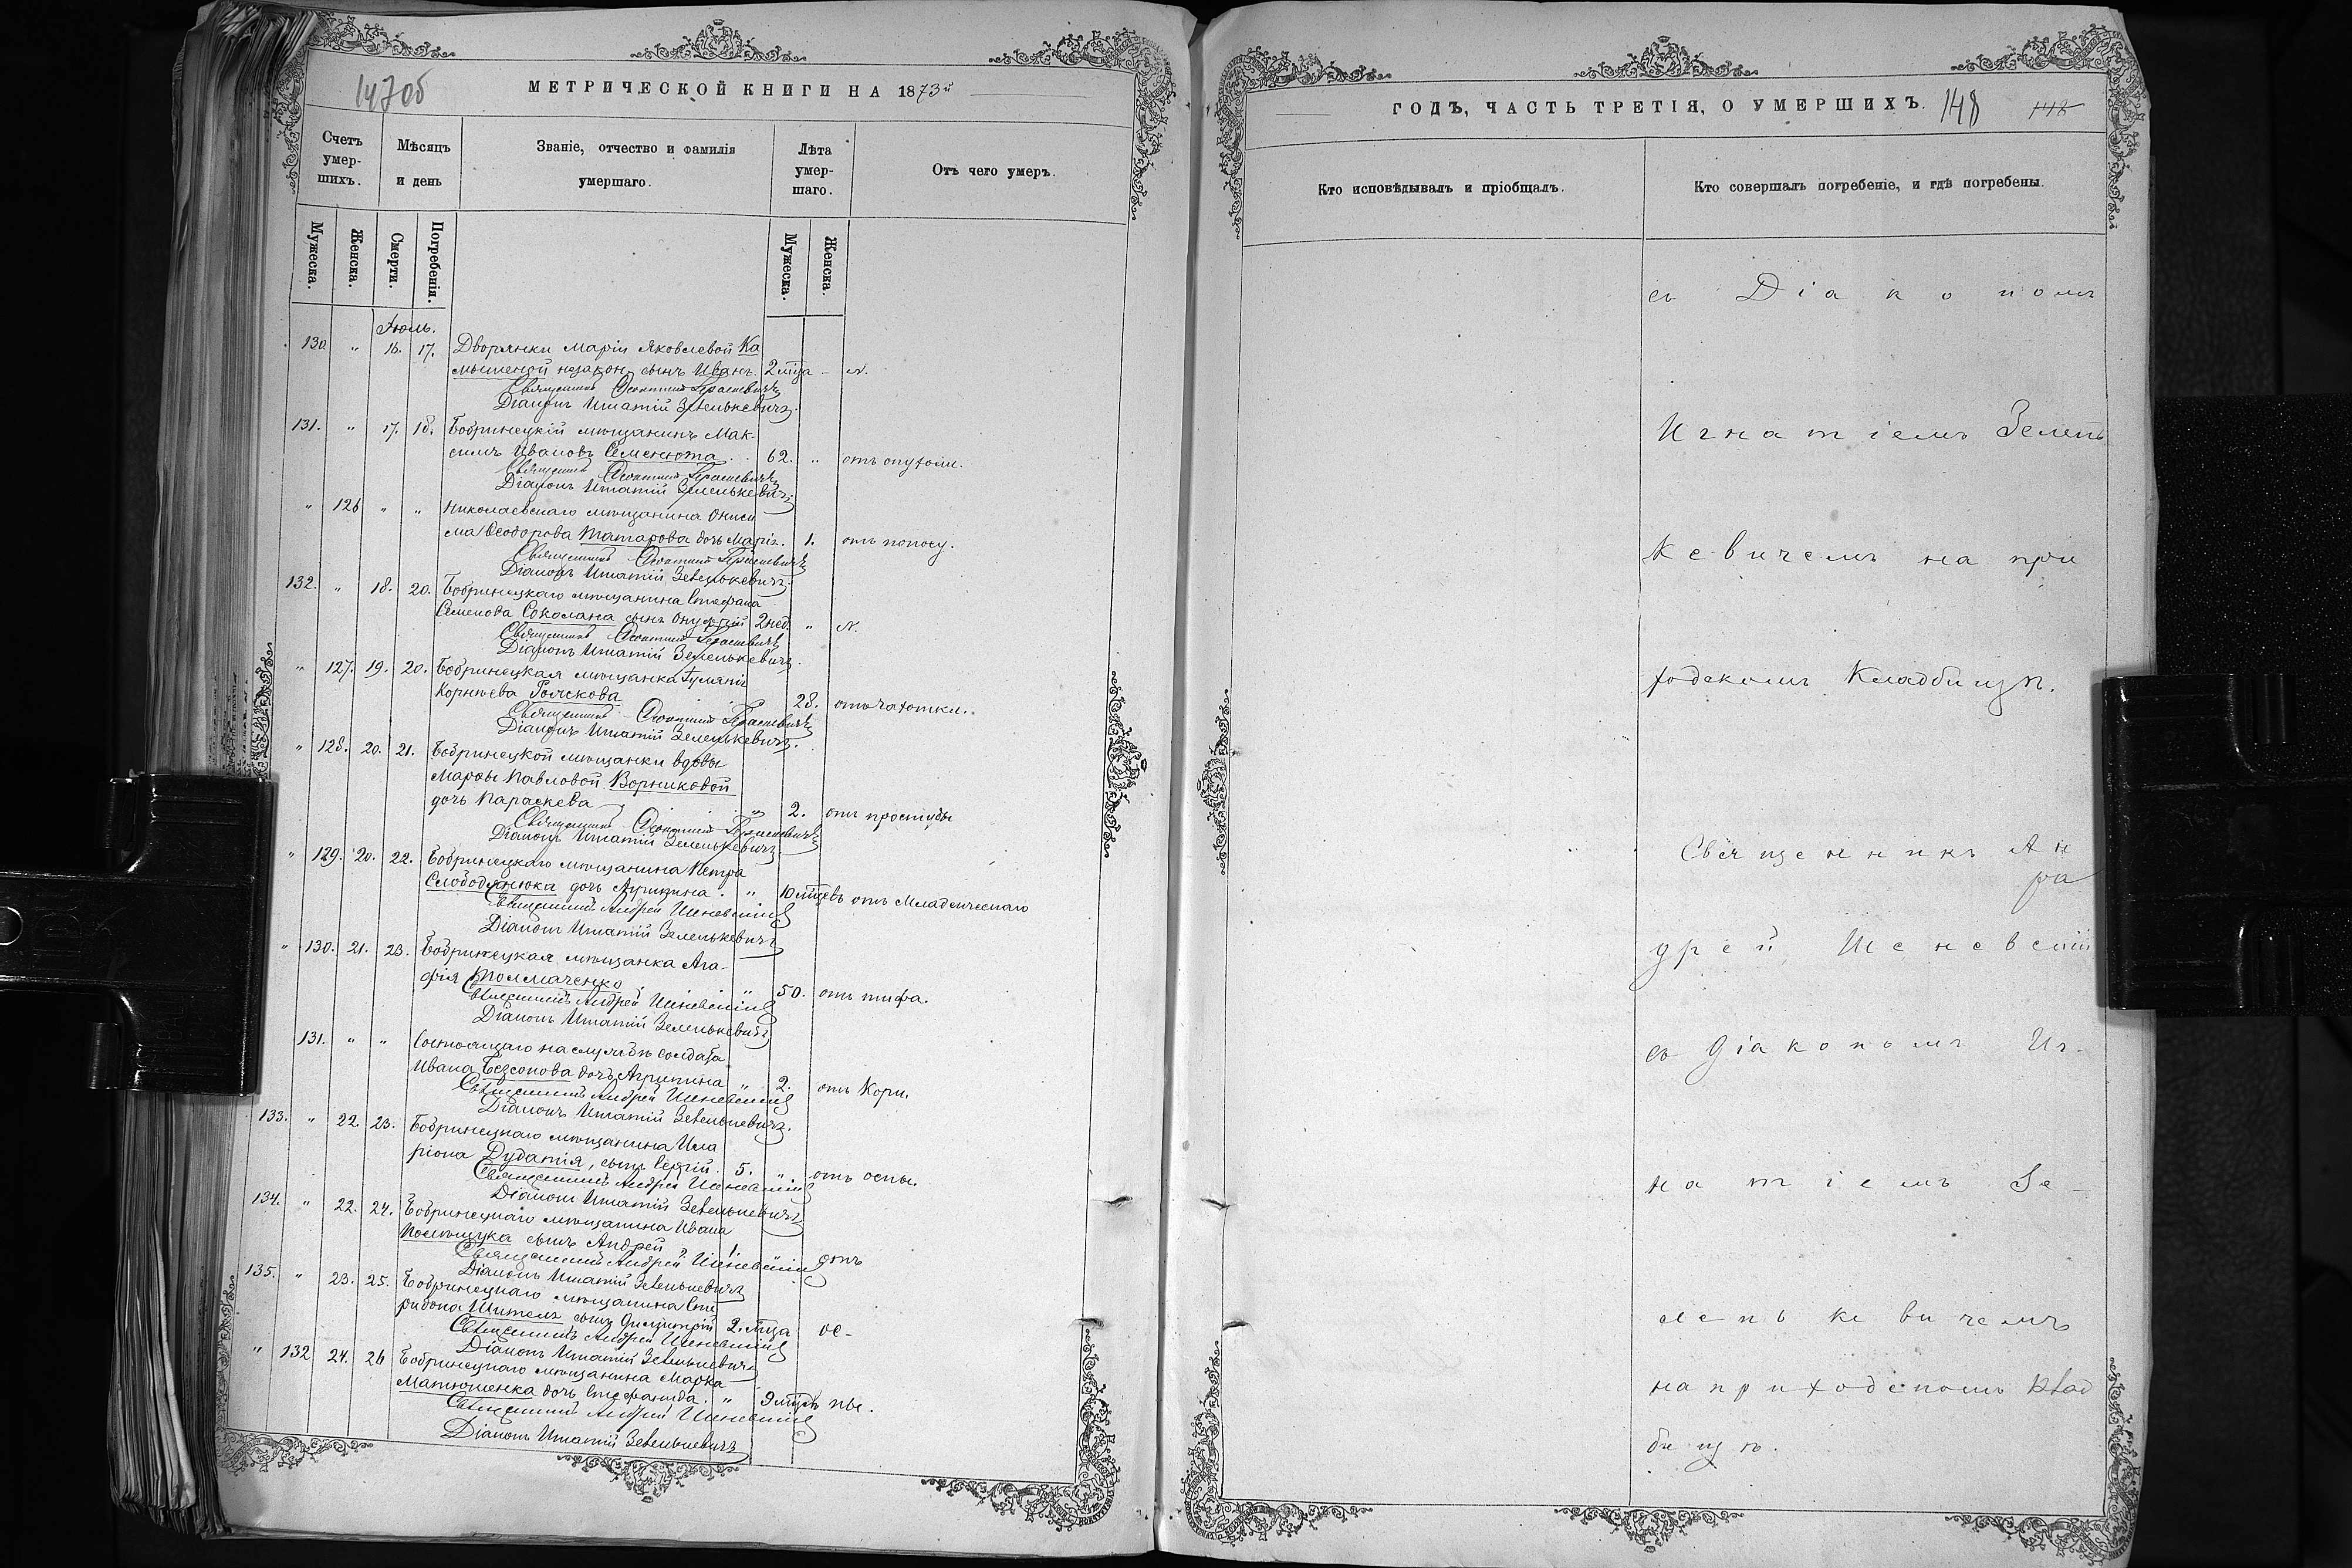 147об
МЕТРИЧЕСКОЙ КНИГИ НА 1873й
Счетъ умершихъ.
Мѣсяцъ и день
Званіе, отчество и фамилія умершаго.
Лѣта умершаго.
Отъ чего умеръ.
Мужеска.
Женска.
Смерти.
Погребенія.
Мужеска.
Женска.
Іюль.
130 " 16. 17. Дворянки Маріи Яковлевой Ка
мышеной незакон. сынъ Иванъ. 2 мца - N.
Священникъ
Діаконъ Игнатій Зеленькевичъ.
131. " 17. 18. Бобринецкій мѣщанинъ Мак-
симъ Ивановъ Семенюта . . 62. " отъ опухоли.
Священникъ
Діаконъ Игнатій Зеленькевичъ
" 126 " " Николаевскаго мѣщанина Ониси
ма Ѳеодорова Татарова дочь Марія. 1. отъ поносу.
Священникъ
Діаконъ Игнатій Зеленькевичъ.
132. " 18. 20. Бобринецкаго мѣщанина Стефана
Семенова Соколана сынъ Онуфрій 2 нед. " N.
Священникъ
Діаконъ Игнатій Зеленькевичъ.
" 127. 19. 20. Бобринецкая мѣщанка
Корнѣева 28. отъ чахотки.
Священникъ
Діаконъ Игнатій Зеленькевичъ.
" 128. 20. 21. Бобринецкой мѣщанки вдовы
Марѳы Павловой Ворниковой
дочь Параскева " 2. отъ простуды
Священникъ
Діаконъ Игнатій Зеленькевичъ
" 129. 20. 22. Бобринецкаго мѣщанина Петра
Слободянюка дочь Агрипина . " 10 мцевъ отъ Младенческаго
Священникъ Андрей Шеневскій
Діаконъ Игнатій Зеленькевичъ
" 130. 21. 23. Бобринецкая мѣщанка Ага-
фія Толмаченко " 50. отъ тифа.
Священникъ Андрей Шеневскій
Діаконъ Игнатій Зеленькевичъ
131. " " Состоящаго на службѣ солдата
Ивана Безсонова дочь Агрипина " 2. отъ Кори.
Священникъ Андрей Шеневскій
Діаконъ Игнатій Зеленькевичъ.
133. " 22. 23. Бобринецкаго мѣщанина Ила
ріона сынъ Сергій. 5. " отъ оспы.
Священникъ Андрей Шеневскій
Діаконъ Игнатій Зеленькевичъ
134. " 22. 24. Бобринецкаго мѣщанина Ивана
Полѣщука сынъ Андрей 1 отъ
Священникъ Андрей Шеневскій
Діаконъ Игнатій Зеленькевичъ
135. " 23. 25. Бобринецкаго мѣщанина Спи
ридона сынъ Димитрій 2. мца ос-
Священникъ Андрей Шеневскій
Діаконъ Игнатій Зеленькевичъ
" 132 24. 26 Бобринецкаго мѣщанина Марка
Матюшенка дочь Стефанида. " 9 мцевъ пы.
Священникъ Андрей Шеневскій
Діаконъ Игнатій Зеленькевичъ
ГОДЪ, ЧАСТЬ ТРЕТІЯ, О УМЕРШИХЪ. 148 148
Кто исповѣдывалъ и пріобщалъ.
Кто совершалъ погребеніе, и гдѣ погребены.
съ Діакономъ
Игнатіемъ Зелень
кевичемъ на при
ходскомъ Кладбищѣ.
Священникъ Ан
дрей Шеневскій
съ Діакономъ Иг-
натіемъ Зе-
ленькевичемъ
на приходскомъ Клад
бищѣ.